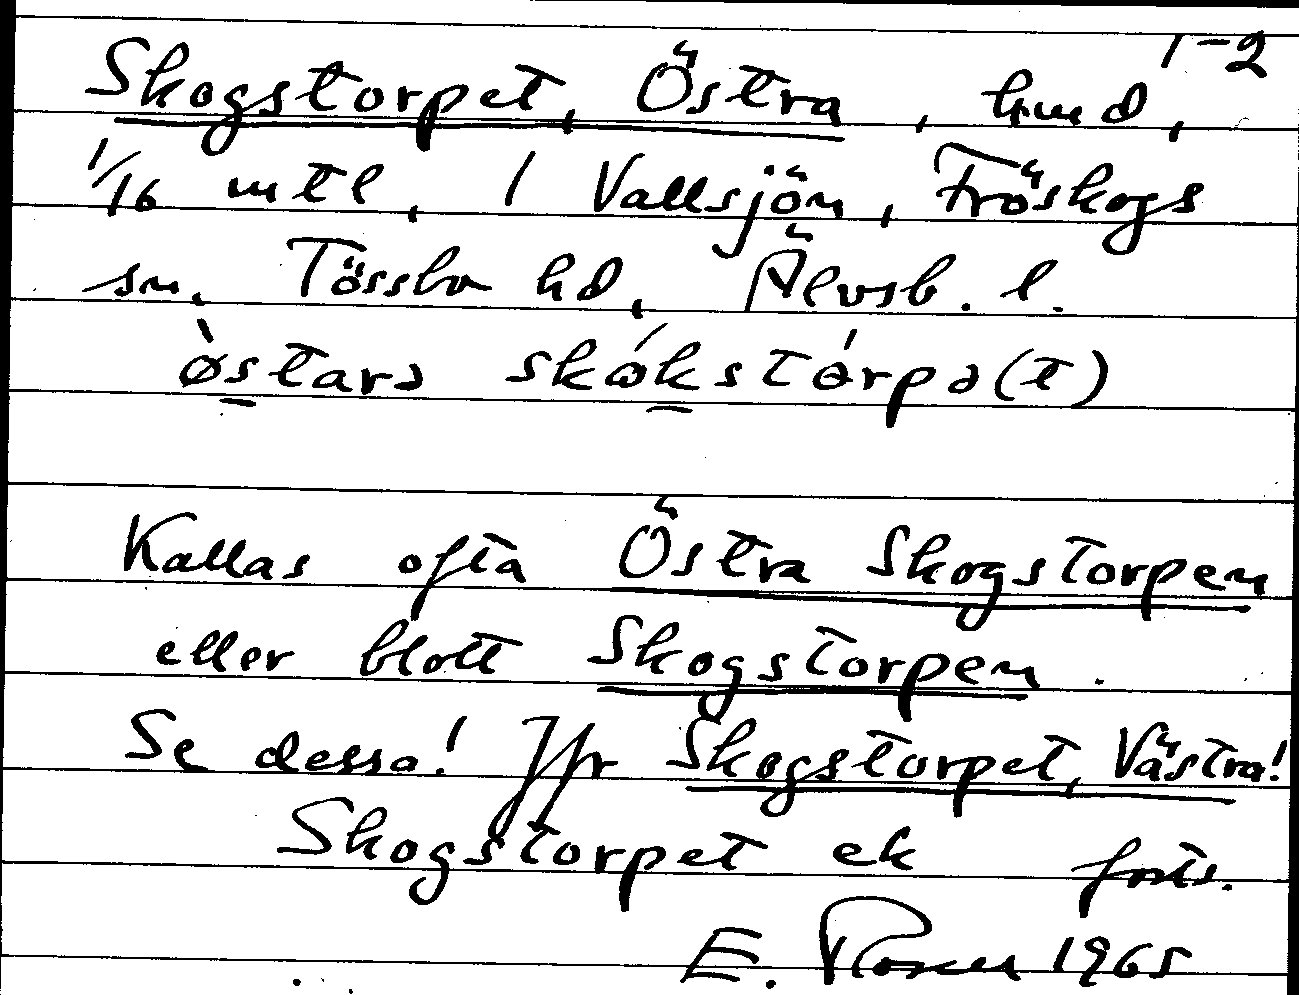 1-2
Skogstorpet, Östra, hmd,
1/16 mtl, 1 Vallsjön, Fröskogs
sn. Tössbo hd, Älvsb. l.
östarə skókstórpə(t)
Kallas ofta Östra Skogstorpen
eller blott Skogstorpen.
Se dessa! Jfr Skogstorpet, Västra!
Skogstorpet ek forts.
E. Rosen 1965